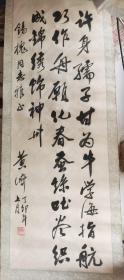 许身孺子甘为牛学海指航
巧作舟愿化春蚕馀吐尽织
成锦绣饰神州
锡槐同志雅正
黄济
丁卯年
七月